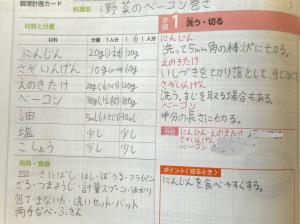 調理計画カード
料理名 野菜のベーコン巻き
材料と分量
材料 分量 1人分 6人分
にんじん 20g
さやいんげん 10g 60g
えのきたけ 20g
ベーコン 30g 180g
油 5mL
塩 少し 少し
こしょう 少し 少し
用具・食器
皿・さいばし・はし・ぼうる・フライパン
ざる・つまようじ・計量スプーン・はかり
包丁・まないた・洗いせっと・バット
両手なべ・ふきん
手順 1 洗う・切る
にんじん
洗って5mm角の棒状に切る。
えのきたけ
いしづきを切り落として、
さやいんげん
洗う。すじを取る場合もある。
ベーコン
半分の長さに切る。
分担
にんじん えのきたけ
さやいんげん
ベーコン
ポイント(切るとき)
にんじんを食べやすくする。